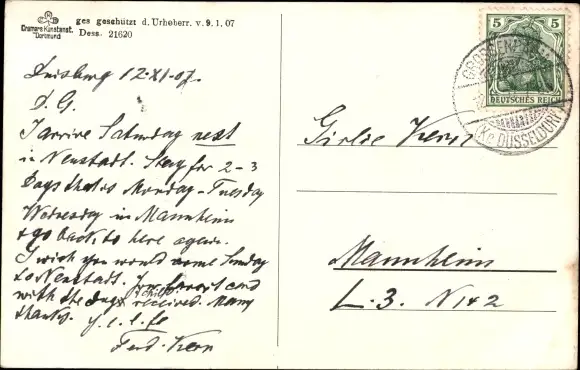 ges geschützt d. Urheberr. v. 9.1.07
Cramers Kunstanst.
Dortmund
Dess. 21620
Duisburg 12.XI.07.
D. G.
I arrive Saturday next
in Neustadt. Stay for 2-3
Days that is Monday-Tuesday
Wednesday in Mannheim
& go back to here again.
I wish you would come Sunday
to Neustadt. Your
with the dogs & received. Many
thanks.
Ferd. Kern
5 5
DEUTSCHES REICH
(Kr. DÜSSELDORF)
Girlie Kern
Mannheim
L. 3. N 1+2